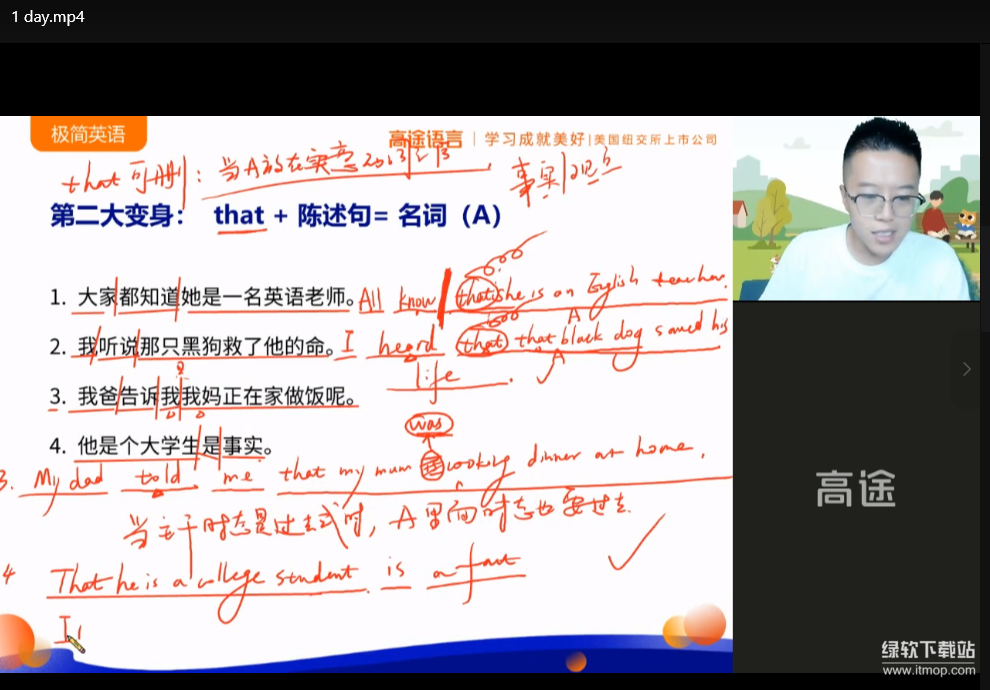 1 day.mp4
极简英语
高途语言 | 学习成就美好 | 美国纽交所上市公司
that 可删: 当A放在实意动词之后 事实/观点
第二大变身: that + 陈述句= 名词（A）
1. 大家都知道她是一名英语老师。All know that she is an English teacher.
2. 我听说那只黑狗救了他的命。I heard that that black dog saved his
life.
3. 我爸告诉我我妈正在家做饭呢。
was
4. 他是个大学生是事实。
3. My dad told me that my mum cooking dinner at home.
当主干时态是过去式时, A里面时态也要过去.
4 That he is a college student is a fact
I
高途
绿软下载站
www.itmop.com